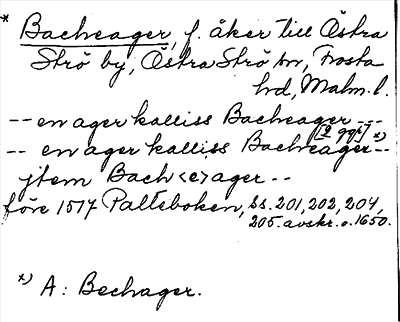 * Bacheager, f. åker till Östra
Strö by, Östra Strö sn, Frosta
hd, Malm. l.
-- en ager kalliss Bacheager --
[2 ggr]
-- en ager kalliss Bacheager x) --
jtem Bach<e>ager --
före 1517 Palteboken, ss. 201, 202, 204,
205. avskr. o. 1650.
x) A: Bechager.